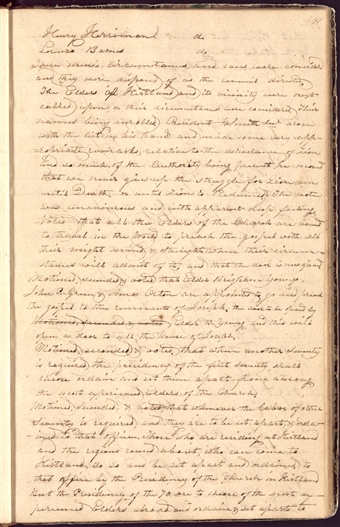 Henry Herriman do
Lorenzo Barnes do
names circumstances and cases were considered
and they were disposed of as the council directed
The Elders of Kirtland and its vicinity were next
called upon or their circumstances were considered, their
names being enrolled, President Smith arose
with the list in his hand and made some very app-
ropriate remarks, relative to the deliverance of Zion
and so much of the Authority being present, he moved
that we never give up the struggle for Zion even
until Death, or until Zion is Redeemed. The vote
was unanimous and with apparent deep feeling
Voted, that all the Elders of the Church are bound
to travel in the World to preach the gospel with all
their might mind & strength when their circum-
stances will admit of it, and that the door is now opened
Motioned, seconded & voted that Elder Brigham Young,
John P. Green, & Amos Orton are appointed to go and preach
the gospel to the remnants of Joseph, the door to be opened by
Motioned, seconded & voted, Elder B. Young and this will
open a door to all the house of Joseph,
Motioned, seconded & voted, that when another seventy
is required, the presidency of the first seventy shall
choose ordain and set them apart from among
the most experienced Elders of the Church.
Motioned, seconded & voted that whenever the labor of other
Seventies is required and they are to be set apart, & orda-
ined to that office, those who are residing at Kirtland
and the regions round about, who can come to
Kirtland, do so and be set apart and ordained to
that office by the Presidency of the Church in Kirtland
But the Presidency of the 70 are to choose of the most ex-
perienced Elders abroad and ordain & set apart to